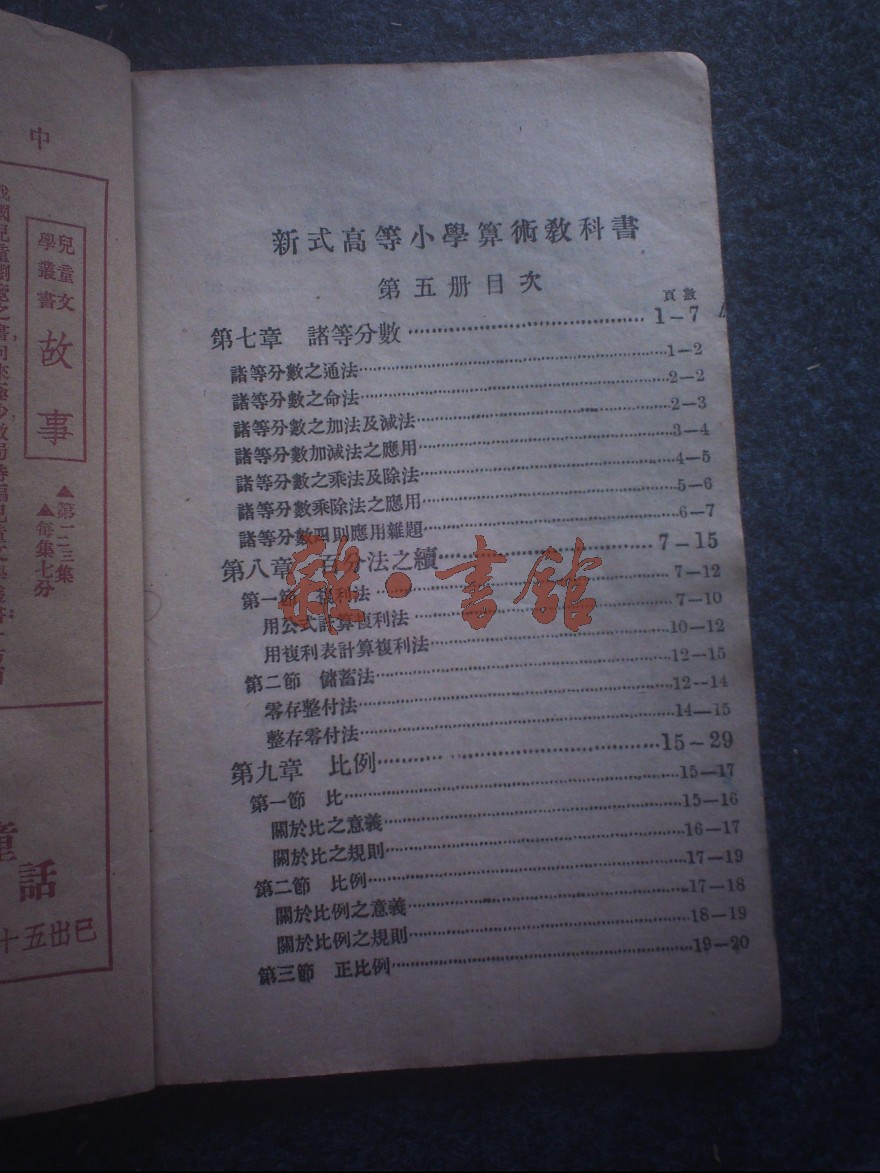 新式高等小學算術敎科書
第五册目次
頁數
第七章　諸等分數……1—7
諸等分數之通法……1—2
諸等分數之命法……2—2
諸等分數之加法及減法……2—3
諸等分數加減法之應用……3—4
諸等分數之乘法及除法……4—5
諸等分數乘除法之應用……5—6
諸等分數四則應用雜題……6—7
第八章　百分法之續……7—15
第一節　複利法……7—12
用公式計算複利法……7—10
用複利表計算複利法……10—12
第二節　儲蓄法……12—15
零存整付法……12—14
整存零付法……14—15
第九章　比例……15—29
第一節　比……15—17
關於比之意義……15—16
關於比之規則……16—17
第二節　比例……17—19
關於比例之意義……17—18
關於比例之規則……18—19
第三節　正比例……19—20
雜·書館
中
兒童文
學叢書
故事
▲第一二三集
▲每集七分
童話
已出五十